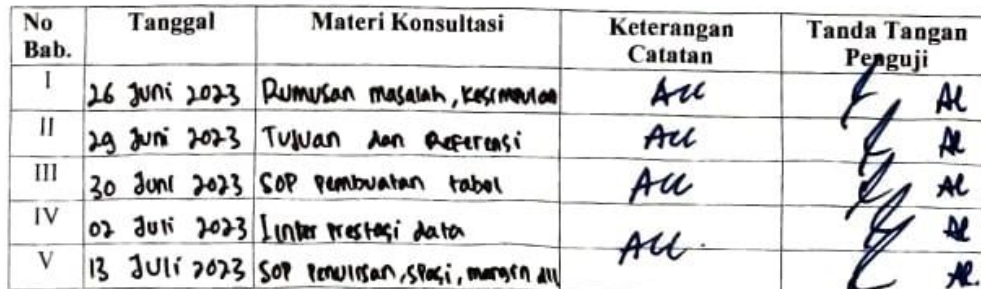 No Bab. Tanggal Materi Konsultasi Keterangan Catatan Tanda Tangan Penguji
I 26 Juni 2023 Rumusan masalah, Kesimpulan ACC
II 29 Juni 2023 Tujuan dan Referensi ACC
III 30 Juni 2023 SOP Pembuatan tabel ACC
IV 02 Juli 2023 Iinter prestasi data ACC.
V 13 Juli 2023 SOP Penulisan, spasi, margin dll